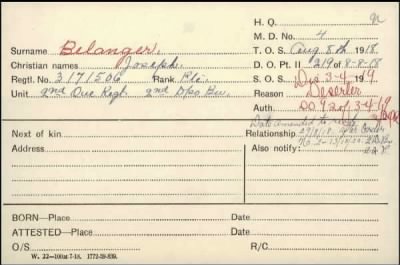 H. Q.
M. D. No. 4
Surname Belanger.
T. O. S. Aug 8th 1918.
Christian names Joseph.
D. O. Pt. II 219 of 8-8-18
Regtl. No. 3171506 Rank Pte.
S. O. S. Dis 3-4-1919
Unit 2nd Que Regt. 2nd Dpo Bn.
Reason Deserter
Auth. DO 92 of 3-4-19
Date amended to read
Next of kin
Relationship 27/8/18
Address
Also notify:
BORN—Place Date
ATTESTED—Place Date
O/S R/C.
W. 22—100M 7-18. 1772-39-839.